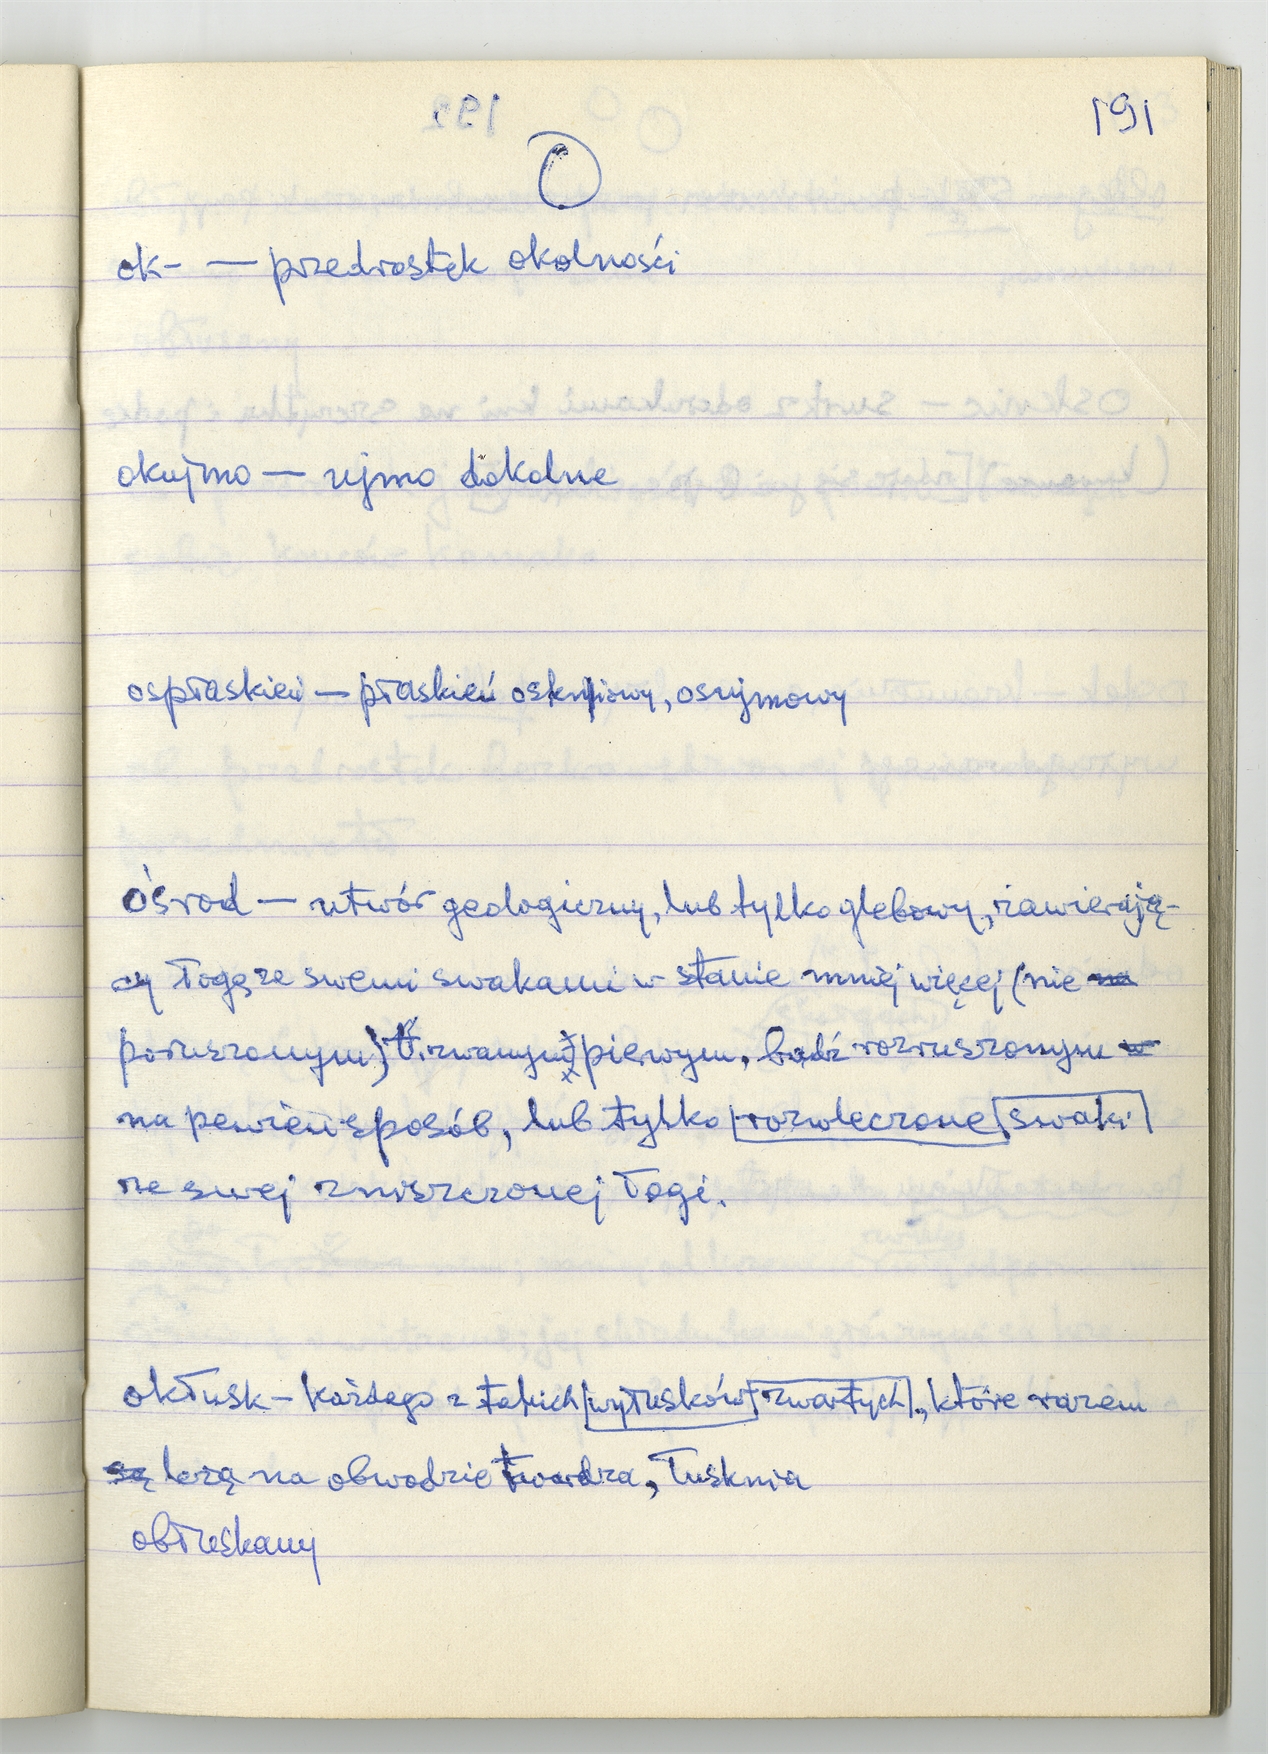 191
O
ok- — przedrostek okolności
okujmo — ujmo dokolne
ospłaskień — płaskień oskniowy, osujmowy
ośrod — utwór geologiczny, lub tylko glebowy, zawierają-
cy łogę ze swemi swakami w stanie mniej więcej (nie
poruszonym) zwanym pierwym, bądź rozruszonym
na pewien sposób, lub tylko rozwleczone swaki
ze swej zniszczonej łogi.
okłusk – każdego z takich wyłusków zwartych, które razem
są leżą na obwodzie twardza, łusknia
obłuskany